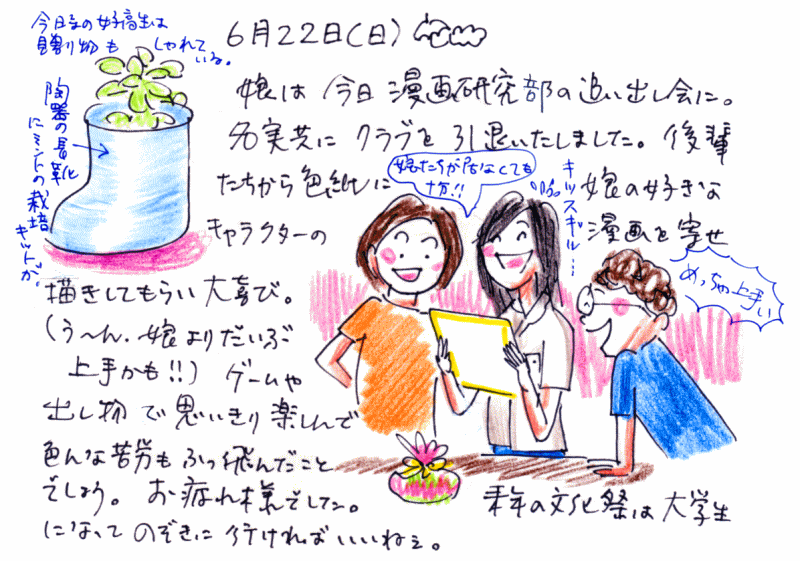 6月22日(日)
今日日の女子高生は
贈り物も しゃれている。
陶器の長靴
にミントの栽培
キットが。
娘は今日漫画研究部の追い出し会に。
名実共にクラブを引退いたしました。後輩
たちから色紙に 娘の好きな
キャラクターの 漫画を寄せ
描きしてもらい大喜び。
(う〜ん、娘よりだいぶ
上手かも!!) ゲームや
出し物で思いきり楽しんで
色んな苦労もふっ飛んだこと
でしょう。お疲れ様でした。
来年の文化祭は大学生
になってのぞきに行ければいいねぇ。
娘たちが居なくても
十分!!
キツスギル…
めっちゃ上手い